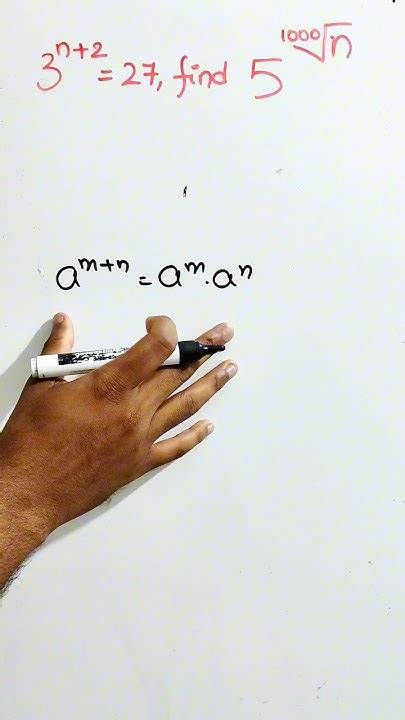 3^{n+2} = 27, find 5^{\sqrt[1000]{n}}
a^{m+n} = a^m . a^n